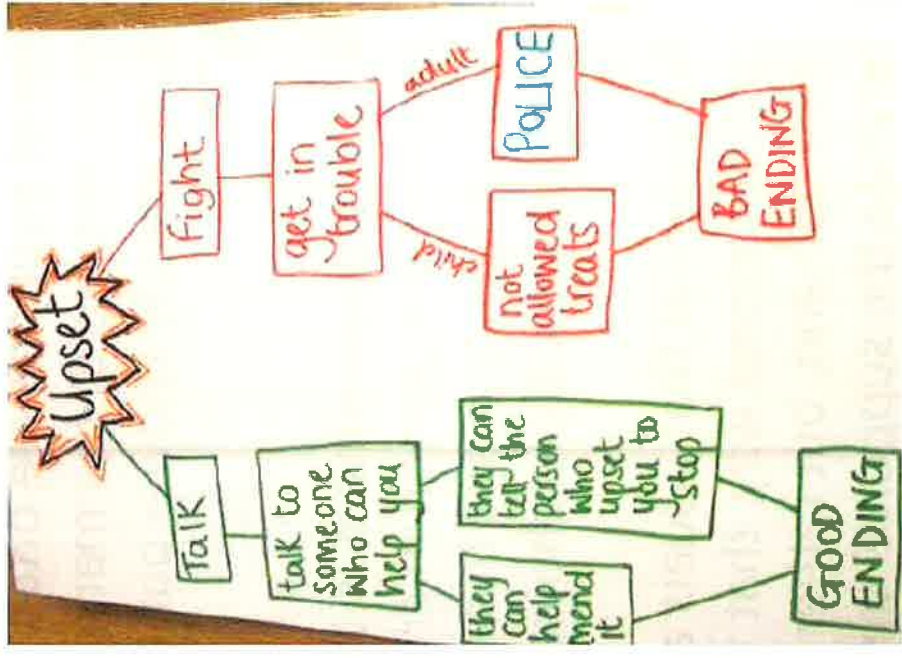 Upset
Talk
talk to
someone
who can
help you
they
can
help
mend
it
they can
tell the
person
who
upset
you to
stop
GOOD
ENDING
Fight
get in
trouble
child
adult
not
allowed
treats
POLICE
BAD
ENDING